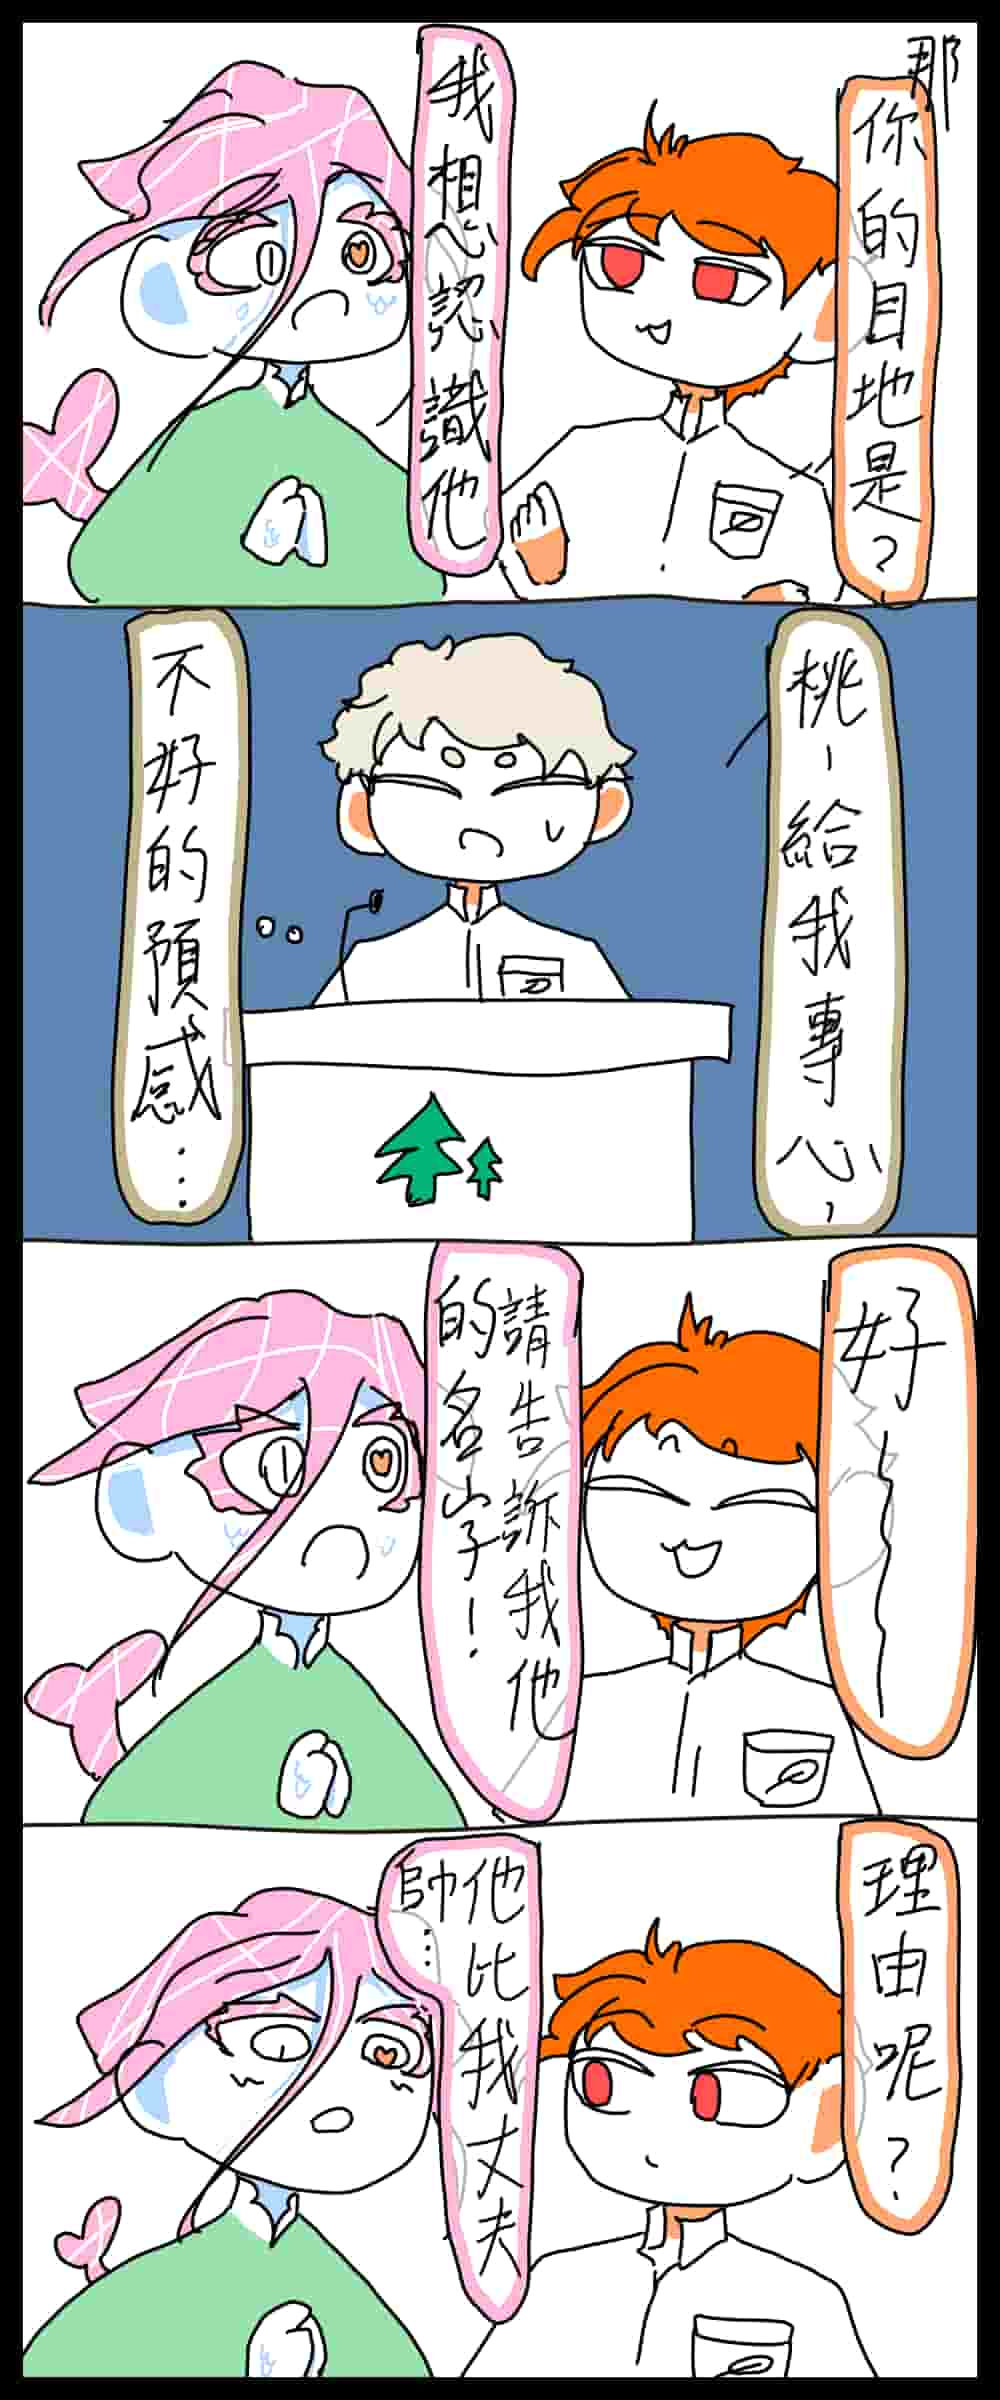 那
你的目地是？
我想認識他
桃-給我專心,
不好的預感...
好～
請告訴我他
的名字！
理由呢？
他比我丈夫
帥...